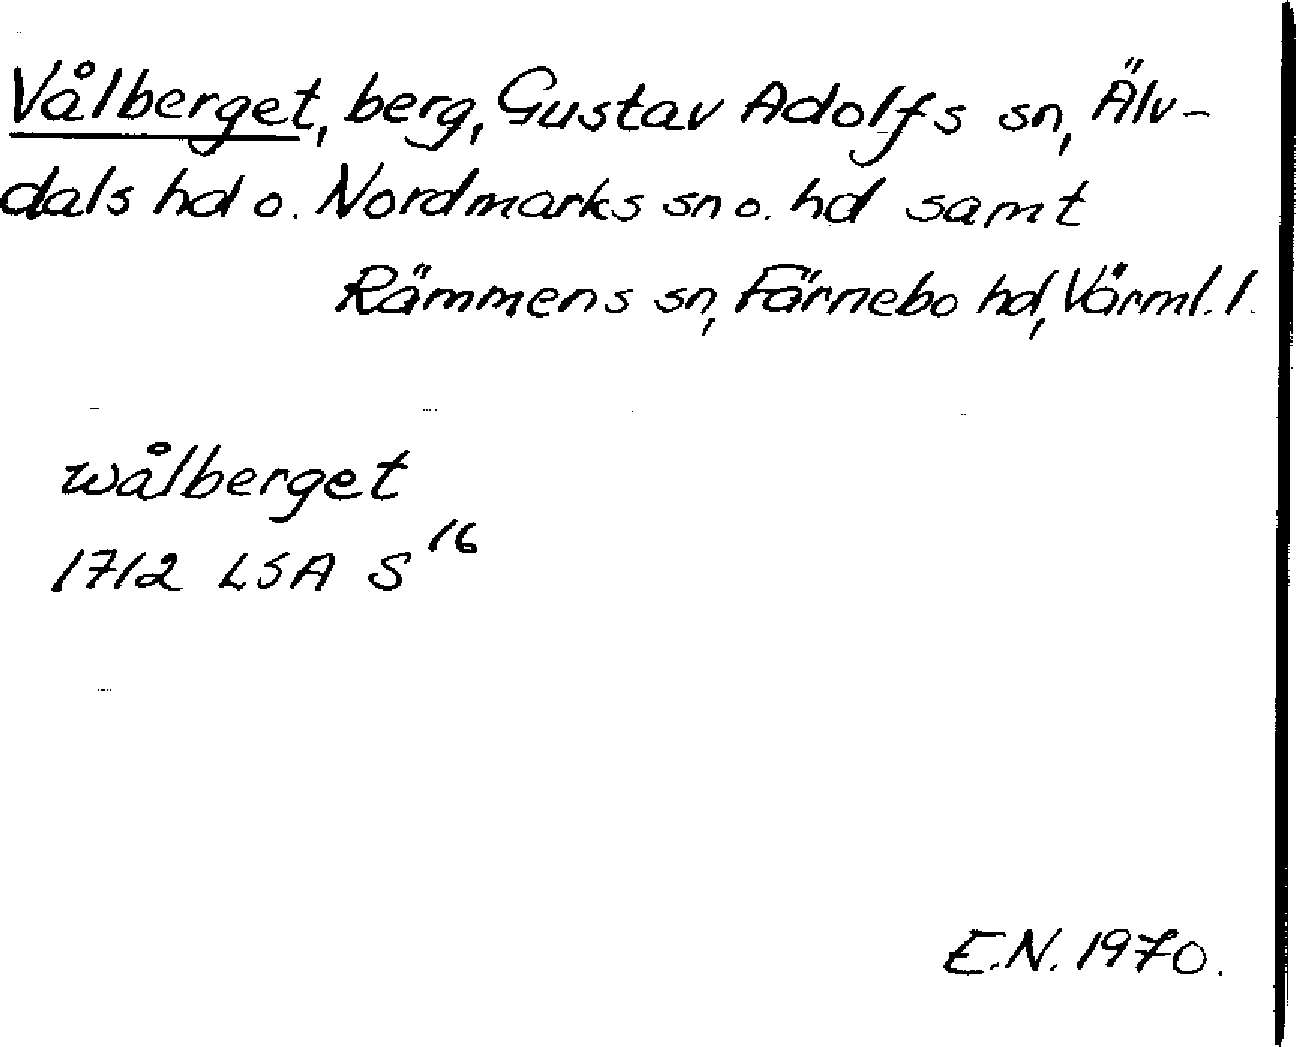 Vålberget, berg, Gustav Adolfs sn, Älv-
dals hd o. Nordmarks sn o. hd samt
Rämmens sn, Färnebo hd, Värml. l.
wålberget
1712 LSA S 16
E.N. 1970.